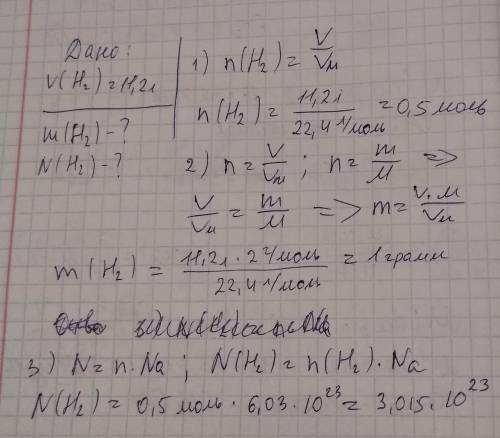 Дано:
V(H₂)=11,2л
m(H₂)-?
N(H₂)-?
1) n(H₂)= V/Vм
n(H₂)= 11,2л/22,4л/моль =0,5моль
2) n= V/Vм ; n= m/M =>
V/Vм = m/M => m= V·M/Vм
m(H₂) = 11,2л·2г/моль/22,4л/моль = 1грамм
3) N=n·Na ; N(H₂)=n(H₂)·Na
N(H₂)=0,5моль·6,03·10²³=3,015·10²³